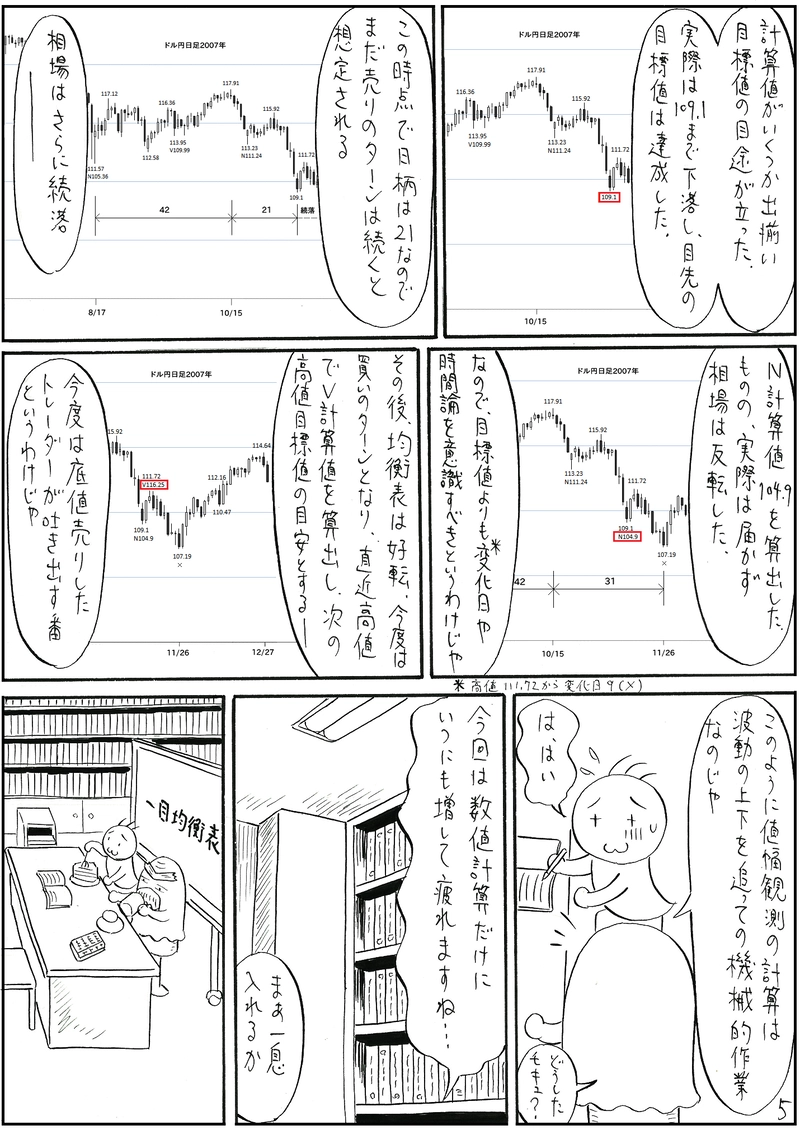 計算値がいくつか出揃い
目標値の目途が立った。
実際は109.1まで下落し、目先の
目標値は達成した。
ドル円日足2007年
117.91
116.36
115.92
113.95
V109.99
113.23
N111.24
111.72
109.1
10/15
この時点で日柄は21なので
まだ売りのターンは続くと
想定される
ドル円日足2007年
117.91
117.12
116.36
115.92
113.95
V109.99
112.58
113.23
N111.24
111.72
111.57
N105.36
109.1
42
21
続落
8/17
10/15
相場はさらに続落
N計算値104.9を算出した
ものの、実際は届かず
相場は反転した。
ドル円日足2007年
117.91
115.92
113.23
N111.24
111.72
109.1
N104.9
107.19
×
42
31
10/15
11/26
なので、目標値よりも変化日や
※
時間論を意識すべきというわけじゃ
※ 高値111.72から変化日9(×)
その後、均衡表は好転、今度は
買いのターンとなり、直近高値
でV計算値を算出し、次の
高値目標値の目安とする―
ドル円日足2007年
115.92
111.72
V116.25
109.1
N104.9
107.19
×
112.16
110.47
114.64
11/26
12/27
今度は底値売りした
トレーダーが吐き出す番
というわけじゃ
このように値幅観測の計算は
波動の上下を追っての機械的作業
なのじゃ
は、はい
どうした
モキュ?
5
今回は数値計算だけに
いつにも増して疲れますね…
まあ一息
入れるか
一目均衡表